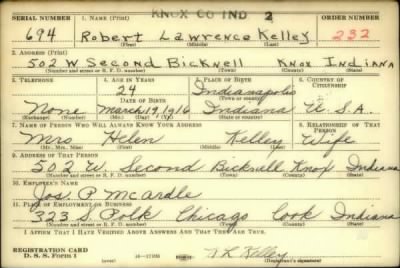 KNOX CO IND 2
SERIAL NUMBER 1. NAME (Print) ORDER NUMBER
694 Robert Lawrence Kelley 232
(First) (Middle) (Last)
2. ADDRESS (Print)
502 W Second Bicknell Knox Indiana
(Number and street or R. F. D. number) (Town) (County) (State)
3. TELEPHONE 4. AGE IN YEARS 5. PLACE OF BIRTH 6. COUNTRY OF CITIZENSHIP
24 Indianapolis
DATE OF BIRTH (Town or county)
None March 19, 1916 Indiana U.S.A.
(Exchange) (Number) (Mo.) (Day) (Yr.) (State or country)
7. NAME OF PERSON WHO WILL ALWAYS KNOW YOUR ADDRESS 8. RELATIONSHIP OF THAT PERSON
Mrs Helen Kelley Wife
(Mr., Mrs., Miss) (First) (Middle) (Last)
9. ADDRESS OF THAT PERSON
502 W. Second Bicknell Knox Indiana
(Number and street or R. F. D. number) (Town) (County) (State)
10. EMPLOYER'S NAME
Jos. P McArdle
11. PLACE OF EMPLOYMENT OR BUSINESS
323 S. Polk Chicago Cook Indiana
(Number and street or R. F. D. number) (Town) (County) (State)
I AFFIRM THAT I HAVE VERIFIED ABOVE ANSWERS AND THAT THEY ARE TRUE.
REGISTRATION CARD
D. S. S. Form 1 (over) 16-17105 R L Kelley
(Registrant's signature)